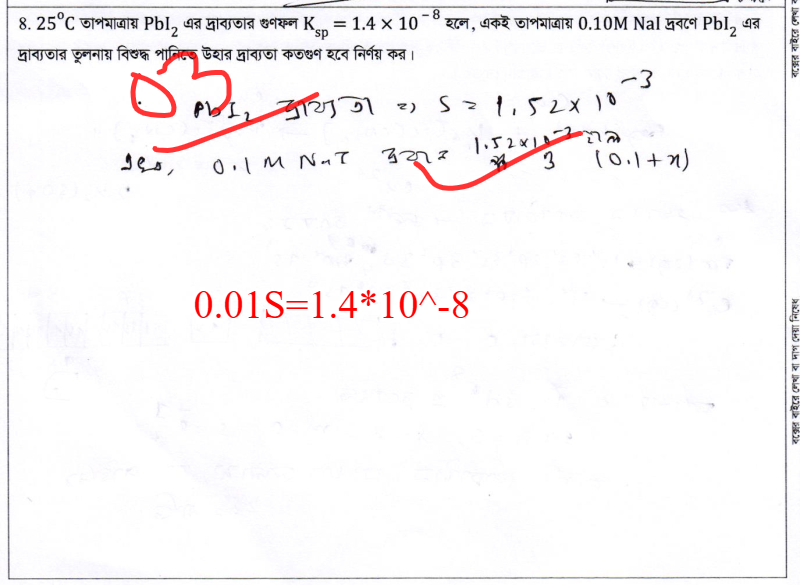 8. 25°C তাপমাত্রায় PbI₂ এর দ্রাব্যতার গুণফল Kₛₚ = 1.4 × 10⁻⁸ হলে, একই তাপমাত্রায় 0.10M NaI দ্রবণে PbI₂ এর
দ্রাব্যতার তুলনায় বিশুদ্ধ পানিতে উহার দ্রাব্যতা কতগুণ হবে নির্ণয় কর।
03
PbI₂ দ্রাব্যতা ⇒ S = 1.52 × 10⁻³
0.1 M NaI
(0.1 + x)
0.01S=1.4*10^-8
বক্সের বাইরে লেখা বা দাগ দেয়া নিষেধ